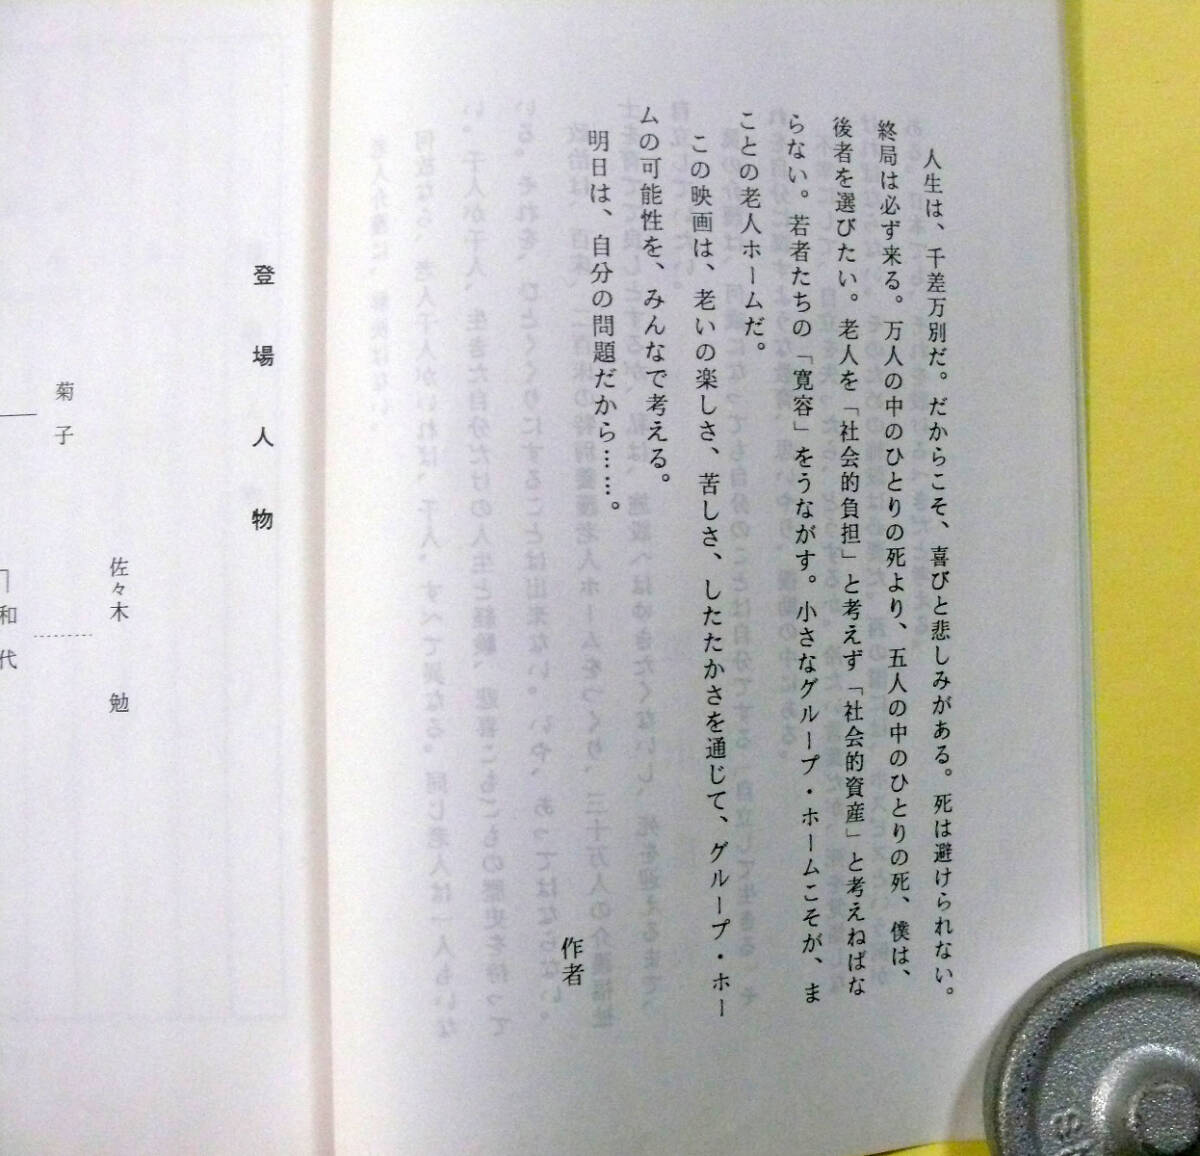 人生は、千差万別だ。だからこそ、喜びと悲しみがある。死は避けられない。
終局は必ず来る。万人の中のひとりの死より、五人の中のひとりの死、僕は、
後者を選びたい。老人を「社会的負担」と考えず「社会的資産」と考えねばな
らない。若者たちの「寛容」をうながす。小さなグループ・ホームこそが、ま
ことの老人ホームだ。
この映画は、老いの楽しさ、苦しさ、したたかさを通じて、グループ・ホー
ムの可能性を、みんなで考える。
明日は、自分の問題だから……。
作者
登場人物
佐々木 勉
菊子
和代